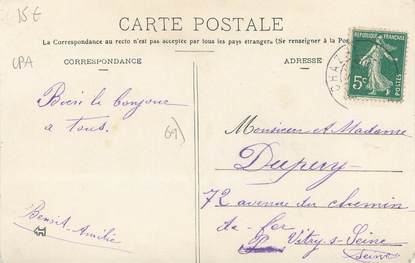 15€
CPA
CARTE POSTALE
La Correspondance au recto n'est pas acceptée par tous les pays étranger. (Se renseigner à la Pos
CORRESPONDANCE
ADRESSE
RÉPUBLIQUE FRANÇAISE
5c
CHAZ
Bien le bonjour
a tous.
69)
Benoit-Amélie
Monsieur et Madame
Dupuy
72 avenue du chemin
de fer
Vitry-s-Seine
Seine